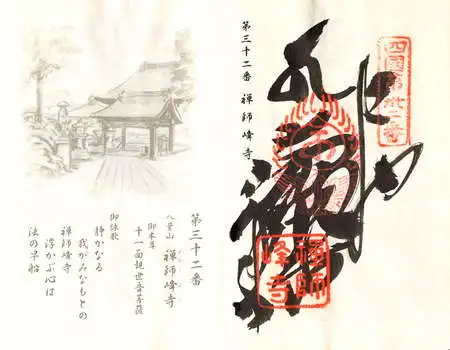 四國第卅二番
第三十二番　禅師峰寺
禪師
峰寺
第三十二番
八葉山　禅師峰寺
御本尊
十一面観世音菩薩
御詠歌
静かなる
我がみなもとの
禅師峰寺
浮かぶ心は
法の早船